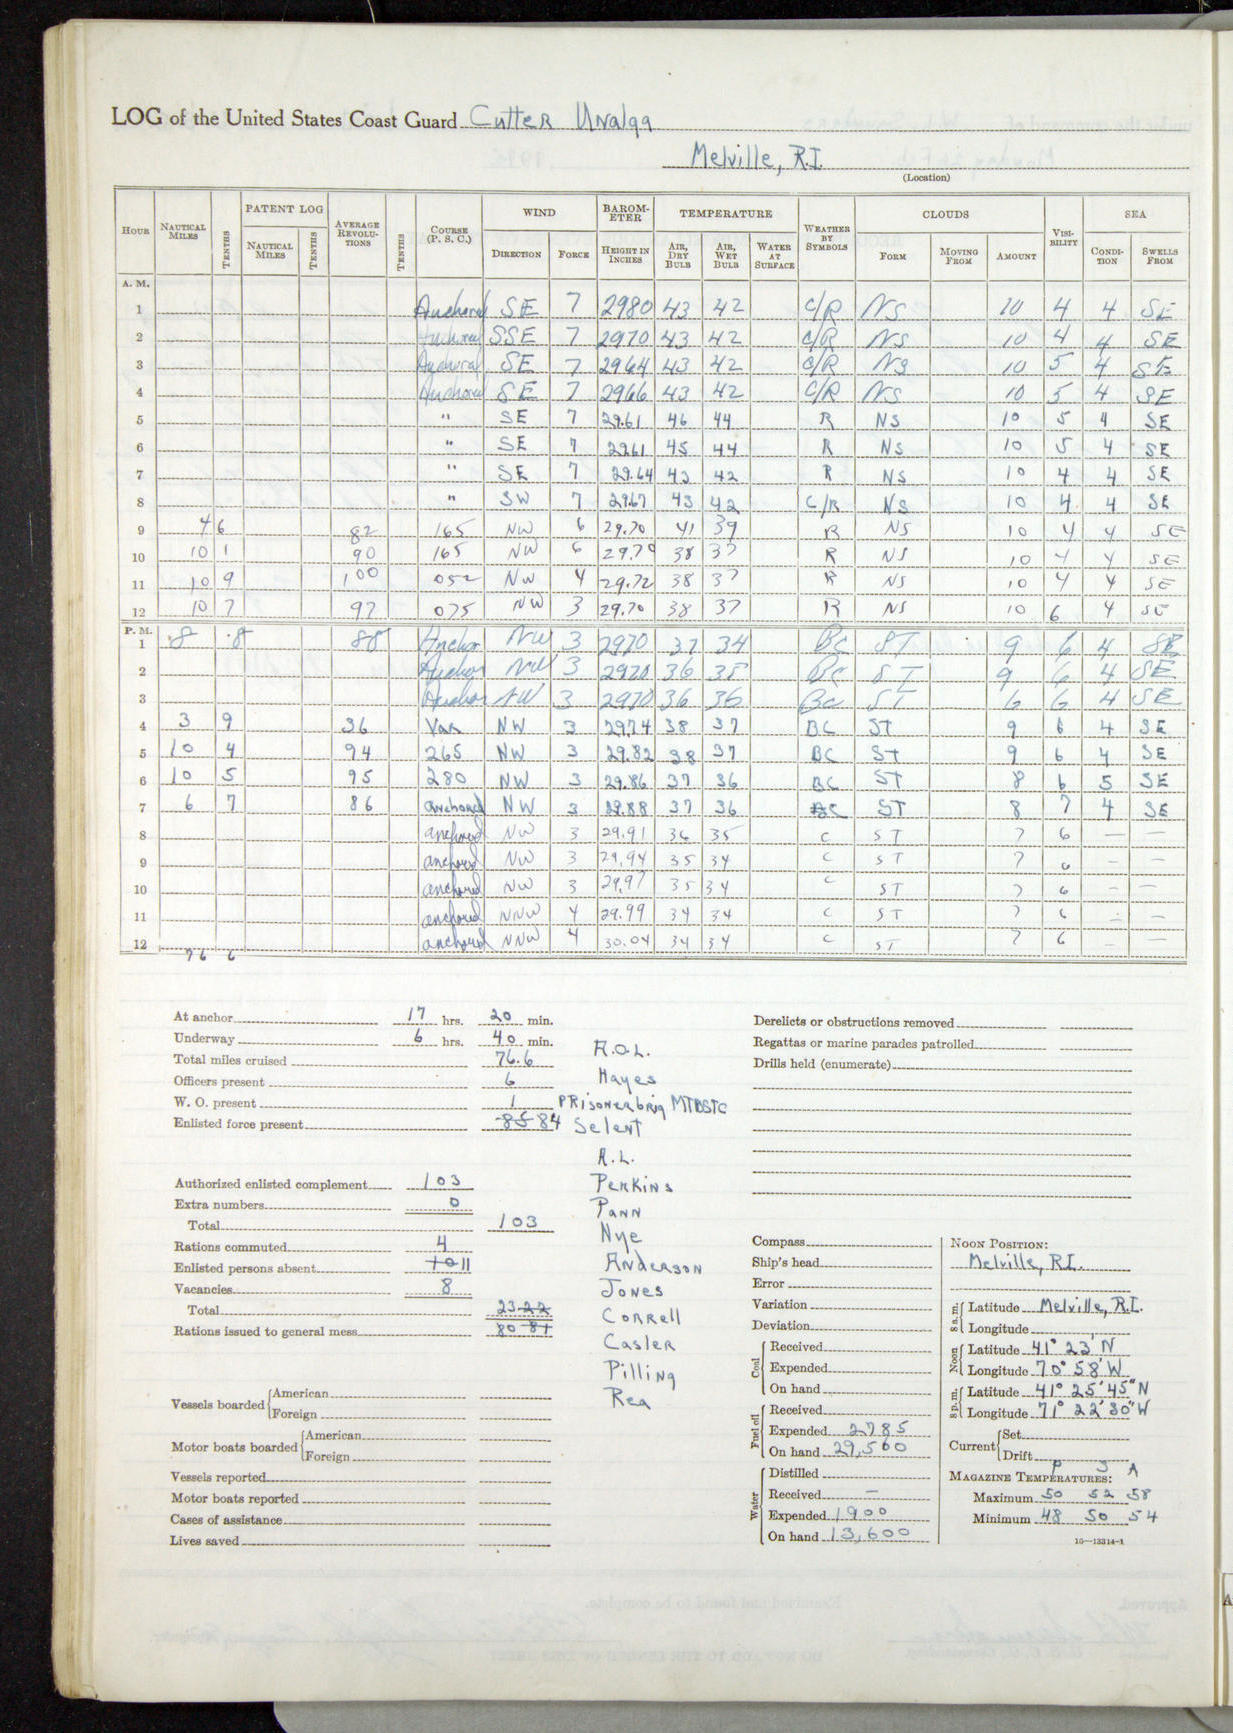 LOG of the United States Coast Guard Cutter Unalga
Melville, R.I.
(Location)
HOUR NAUTICAL MILES TENTHS PATENT LOG NAUTICAL MILES TENTHS AVERAGE REVOLUTIONS TENTHS COURSE (P. S. C.) WIND DIRECTION FORCE BAROMETER HEIGHT IN INCHES TEMPERATURE AIR, DRY BULB AIR, WET BULB WATER AT SURFACE WEATHER BY SYMBOLS CLOUDS FORM MOVING FROM AMOUNT VISIBILITY SEA CONDITION SWELLS FROM
A. M.
1 Anchored SE 7 2980 43 42 C/R NS 10 4 4 SE
2 Anchored SSE 7 2970 43 42 C/R NS 10 4 4 SE
3 Anchored SE 7 2964 43 42 C/R NS 10 5 4 SE
4 Anchored SE 7 2966 43 42 C/R NS 10 5 4 SE
5 " SE 7 29.61 46 44 R NS 10 5 4 SE
6 " SE 7 29.61 45 44 R NS 10 5 4 SE
7 " SE 7 29.64 43 42 R NS 10 4 4 SE
8 " SW 7 29.67 43 42 C/R NS 10 4 4 SE
9 4 6 82 165 NW 6 29.70 41 39 R NS 10 4 4 SE
10 10 1 90 165 NW 6 29.70 38 37 R NS 10 4 4 SE
11 10 9 100 052 NW 4 29.72 38 37 R NS 10 4 4 SE
12 10 7 97 075 NW 3 29.70 38 37 R NS 10 6 4 SE
P. M.
1 8 8 88 Anchor NW 3 2970 37 34 BC ST 9 6 4 SE
2 Anchor NW 3 2970 36 35 BC ST 9 6 4 SE
3 Anchor NW 3 2970 36 36 BC ST 6 6 4 SE
4 3 9 36 Var NW 3 29.74 38 37 BC ST 9 6 4 SE
5 10 4 94 265 NW 3 29.82 38 37 BC ST 9 6 4 SE
6 10 5 95 280 NW 3 29.86 37 36 BC ST 8 6 5 SE
7 6 7 86 anchored NW 3 29.88 37 36 BC ST 8 7 4 SE
8 anchored NW 3 29.91 36 35 C ST 7 6 — —
9 anchored NW 3 29.94 35 34 C ST 7 6 — —
10 anchored NW 3 29.97 35 34 C ST 7 6 — —
11 anchored NNW 4 29.99 34 34 C ST 7 6 — —
12 anchored NNW 4 30.04 34 34 C ST 7 6 — —
76 6
At anchor 17 hrs. 20 min.
Underway 6 hrs. 40 min.
Total miles cruised 76.6
Officers present 6
W. O. present 1
Enlisted force present 85 84
Authorized enlisted complement 103
Extra numbers 0
Total 103
Rations commuted 4
Enlisted persons absent 10 11
Vacancies 8
Total 23 22
Rations issued to general mess 80 81
Vessels boarded American
Foreign
Motor boats boarded American
Foreign
Vessels reported
Motor boats reported
Cases of assistance
Lives saved
A.O.L.
Hayes
Prisoner brig MTBSTC
Selent
A.L.
Perkins
Pann
Nye
Anderson
Jones
Correll
Casler
Pilling
Rea
Derelicts or obstructions removed
Regattas or marine parades patrolled
Drills held (enumerate)
Compass
Ship's head
Error
Variation
Deviation
Coal Received
Expended
On hand
Fuel oil Received
Expended 2785
On hand 29,560
Water Distilled
Received —
Expended 1900
On hand 13,600
NOON POSITION:
Melville, R.I.
8 a.m. Latitude Melville, R.I.
Longitude
Noon Latitude 41° 23' N
Longitude 70° 58' W
8 p.m. Latitude 41° 25' 45" N
Longitude 71° 22' 30" W
Current Set
Drift
P S A
MAGAZINE TEMPERATURES:
Maximum 50 52 58
Minimum 48 50 54
16—13314-1